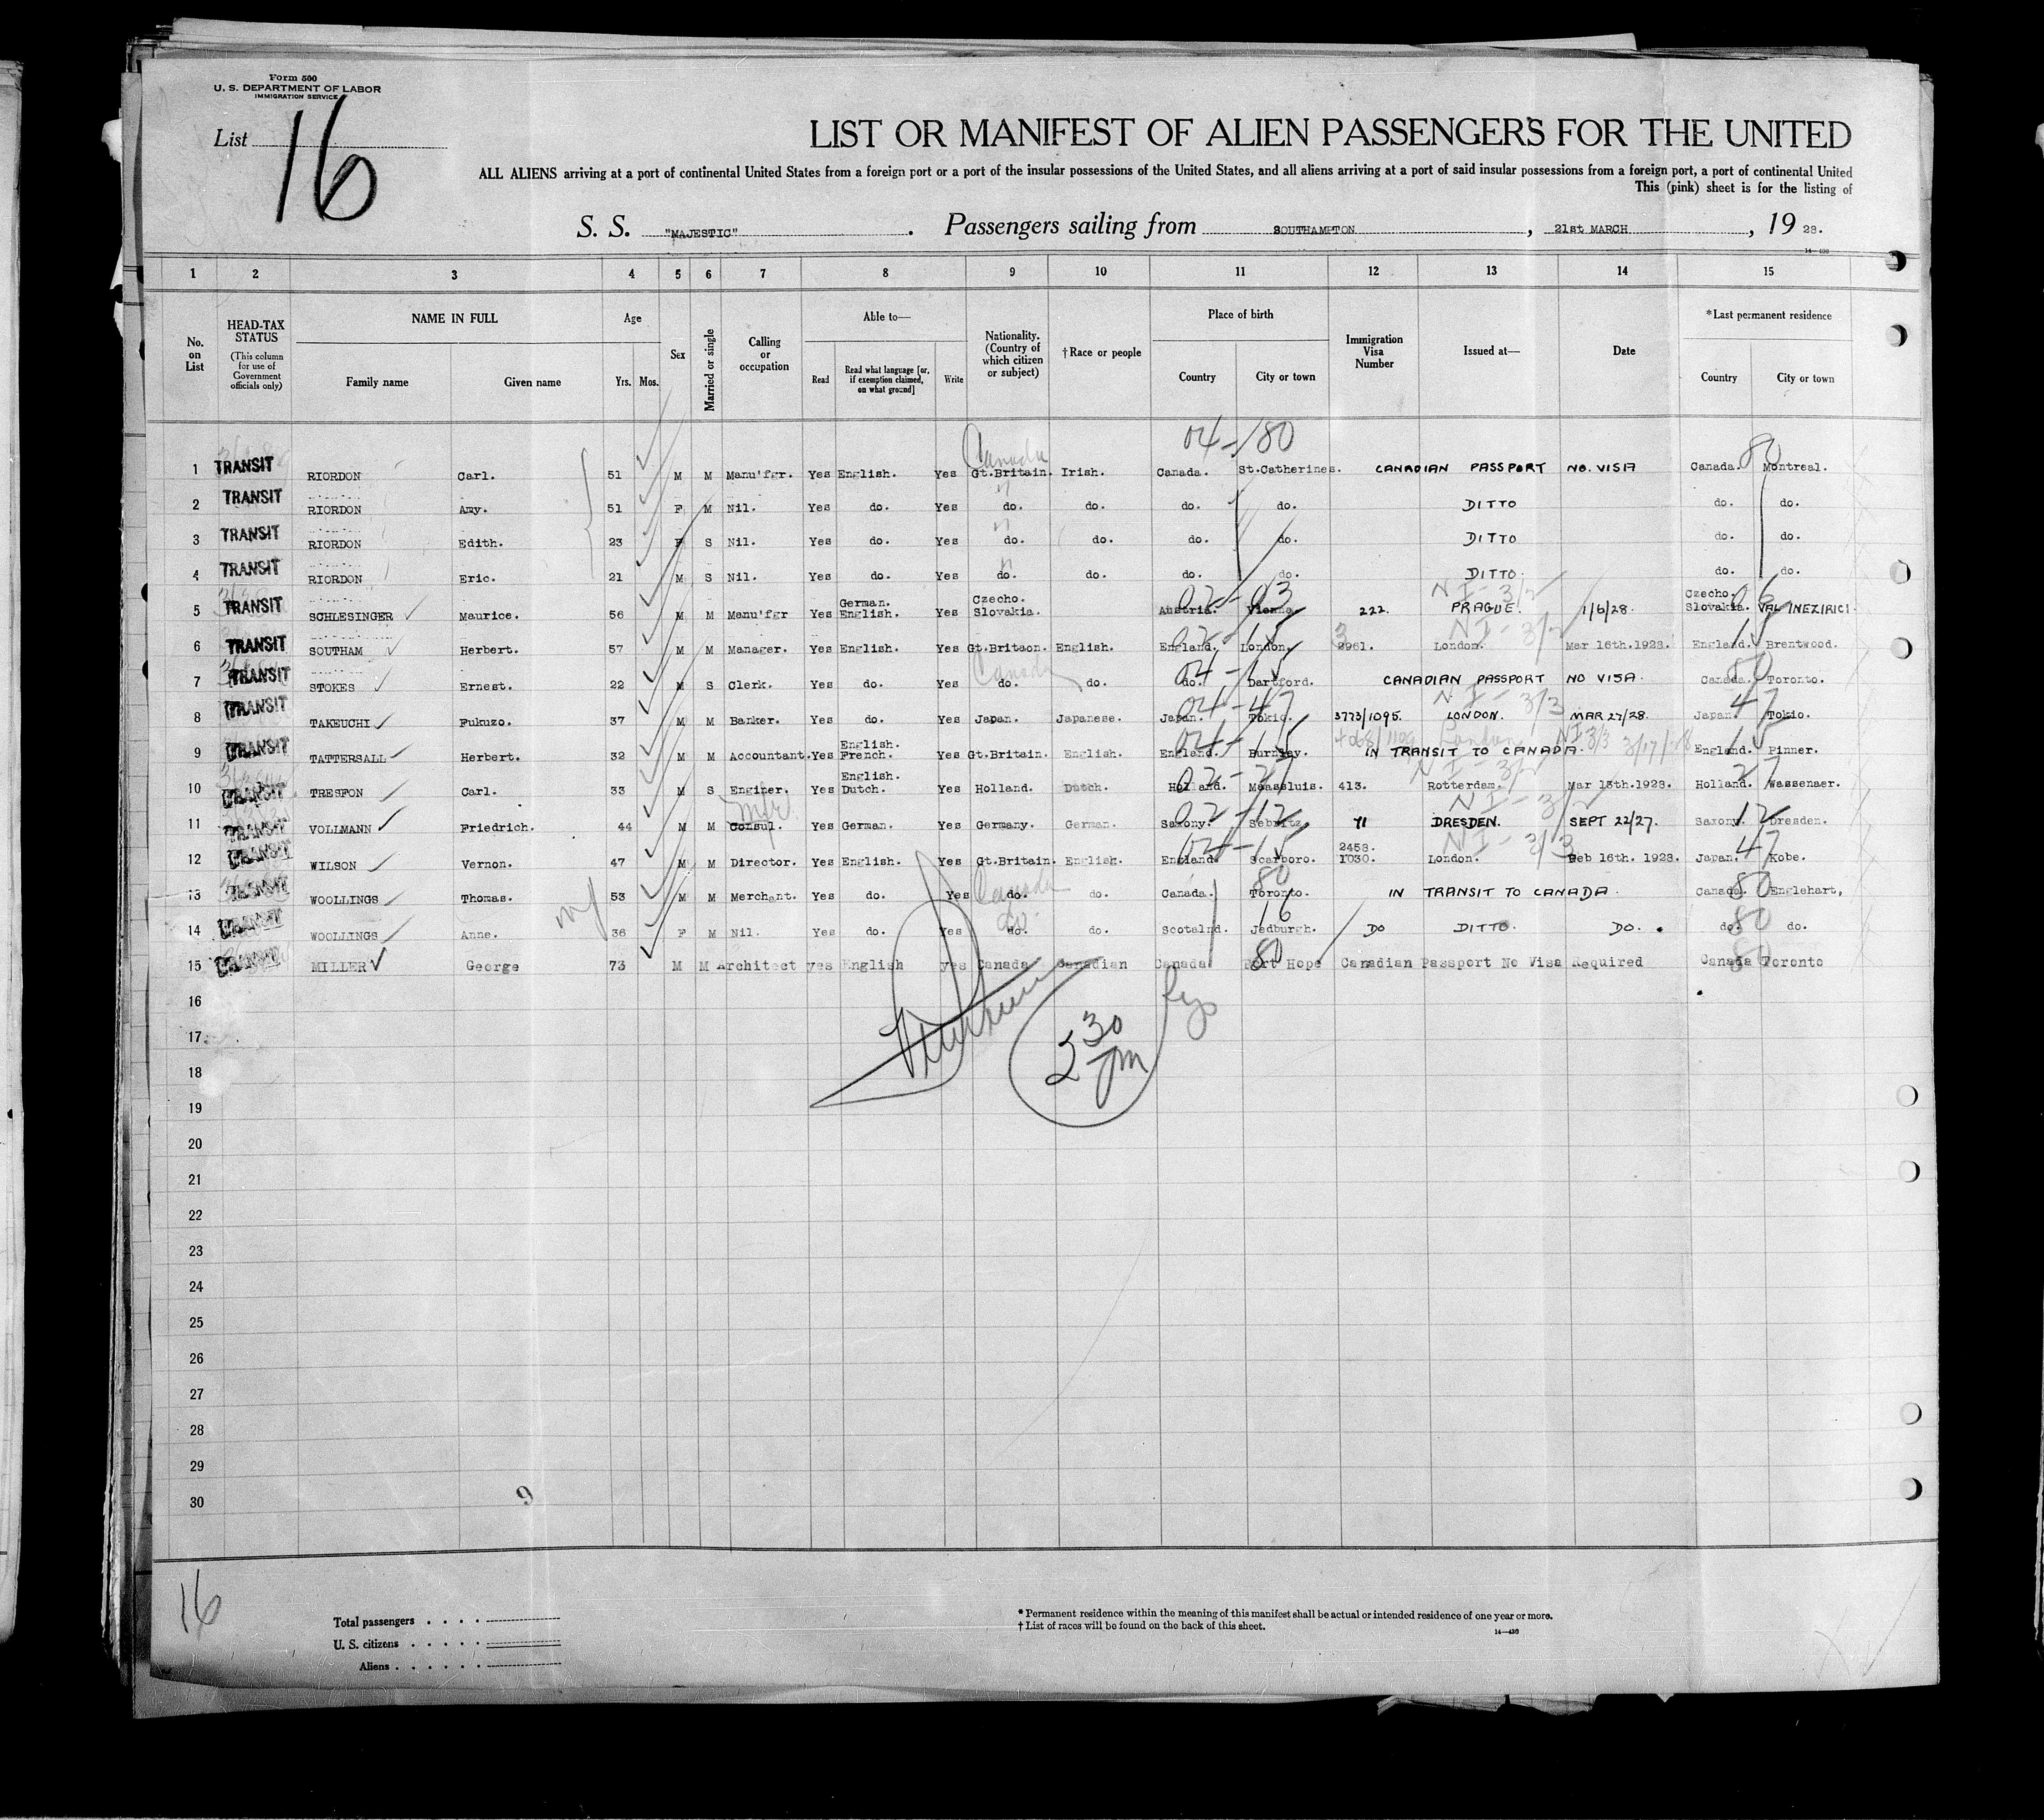 Form 500
U. S. DEPARTMENT OF LABOR
IMMIGRATION SERVICE
List 16
LIST OR MANIFEST OF ALIEN PASSENGERS FOR THE UNITED
ALL ALIENS arriving at a port of continental United States from a foreign port or a port of the insular possessions of the United States, and all aliens arriving at a port of said insular possessions from a foreign port, a port of continental United
This (pink) sheet is for the listing of
S. S. "MAJESTIC". Passengers sailing from SOUTHAMPTON, 21st MARCH, 19 28.
1 2 3 4 5 6 7 8 9 10 11 12 13 14 15
No. on List
HEAD-TAX STATUS (This column for use of Government officials only)
NAME IN FULL
Family name Given name
Age
Yrs. Mos.
Sex
Married or single
Calling or occupation
Able to—
Read Read what language [or, if exemption claimed, on what ground] Write
Nationality. (Country of which citizen or subject)
†Race or people
Place of birth
Country City or town
Immigration Visa Number
Issued at—
Date
*Last permanent residence
Country City or town
04-180
1 TRANSIT RIORDON Carl. 51 M M Manu'fgr. Yes English. Yes Canada Gt.Britain. Irish. Canada. St.Catherines. CANADIAN PASSPORT NO. VISA Canada. 80 Montreal.
2 TRANSIT RIORDON Amy. 51 F M Nil. Yes do. Yes do. do. do. do. DITTO do. do.
3 TRANSIT RIORDON Edith. 23 F S Nil. Yes do. Yes do. do. do. do. DITTO do. do.
4 TRANSIT RIORDON Eric. 21 M S Nil. Yes do. Yes do. do. do. do. DITTO do. do.
5 TRANSIT SCHLESINGER Maurice. 56 M M Manu'fgr Yes German. English. Yes Czecho. Slovakia. Austria. Vienna 222. PRAGUE. 1/6/28. Czecho. Slovakia. VAL INEZIRICI.
6 TRANSIT SOUTHAM Herbert. 57 M M Manager. Yes English. Yes Gt.Britaon. English. England. London. 3961. London. Mar 16th.1928. England. Brentwood.
7 TRANSIT STOKES Ernest. 22 M S Clerk. Yes do. Yes Canada do. do. do. Dartford. CANADIAN PASSPORT NO VISA. Canada. 80 Toronto.
8 TRANSIT TAKEUCHI Fukuzo. 37 M M Banker. Yes do. Yes Japan. Japanese. Japan. Tokio. 3773/1095. LONDON. MAR 27/28. Japan. 47 Tokio.
9 TRANSIT TATTERSALL Herbert. 32 M M Accountant. Yes English. French. Yes Gt.Britain. English. England. Burnley. IN TRANSIT TO CANADA. England. Pinner.
10 TRANSIT TRESFON Carl. 33 M S Enginer. Yes English. Dutch. Yes Holland. Dutch. Holland. Maassluis. 413. Rotterdam. Mar 13th.1928. Holland. 27 Wassenaer.
11 TRANSIT VOLLMANN Friedrich. 44 M M Consul. Yes German. Yes Germany. German. Saxony. Sebnitz. 71 DRESDEN. SEPT 22/27. Saxony. 12 Dresden.
12 TRANSIT WILSON Vernon. 47 M M Director. Yes English. Yes Gt.Britain. English. England. Scarboro. 2458. 1030. London. Feb 16th. 1928. Japan. 47 Kobe.
13 TRANSIT WOOLLINGS Thomas. 53 M M Merchant. Yes do. Yes Canada do. do. Canada. Toronto. IN TRANSIT TO CANADA. Canada. 80 Englehart,
14 TRANSIT WOOLLINGS Anne. 36 F M Nil. Yes do. Yes do. do. Scotalnd. Jedburgh. DO DITTO. DO. do. 80 do.
15 TRANSIT MILLER George 73 M M Architect yes English yes Canada Canadian Canada Port Hope Canadian Passport No Visa Required Canada 80 Toronto
16
17
2 30 pm
18
19
20
21
22
23
24
25
26
27
28
29
30
9
16
Total passengers
U. S. citizens
Aliens
* Permanent residence within the meaning of this manifest shall be actual or intended residence of one year or more.
† List of races will be found on the back of this sheet.
14—430